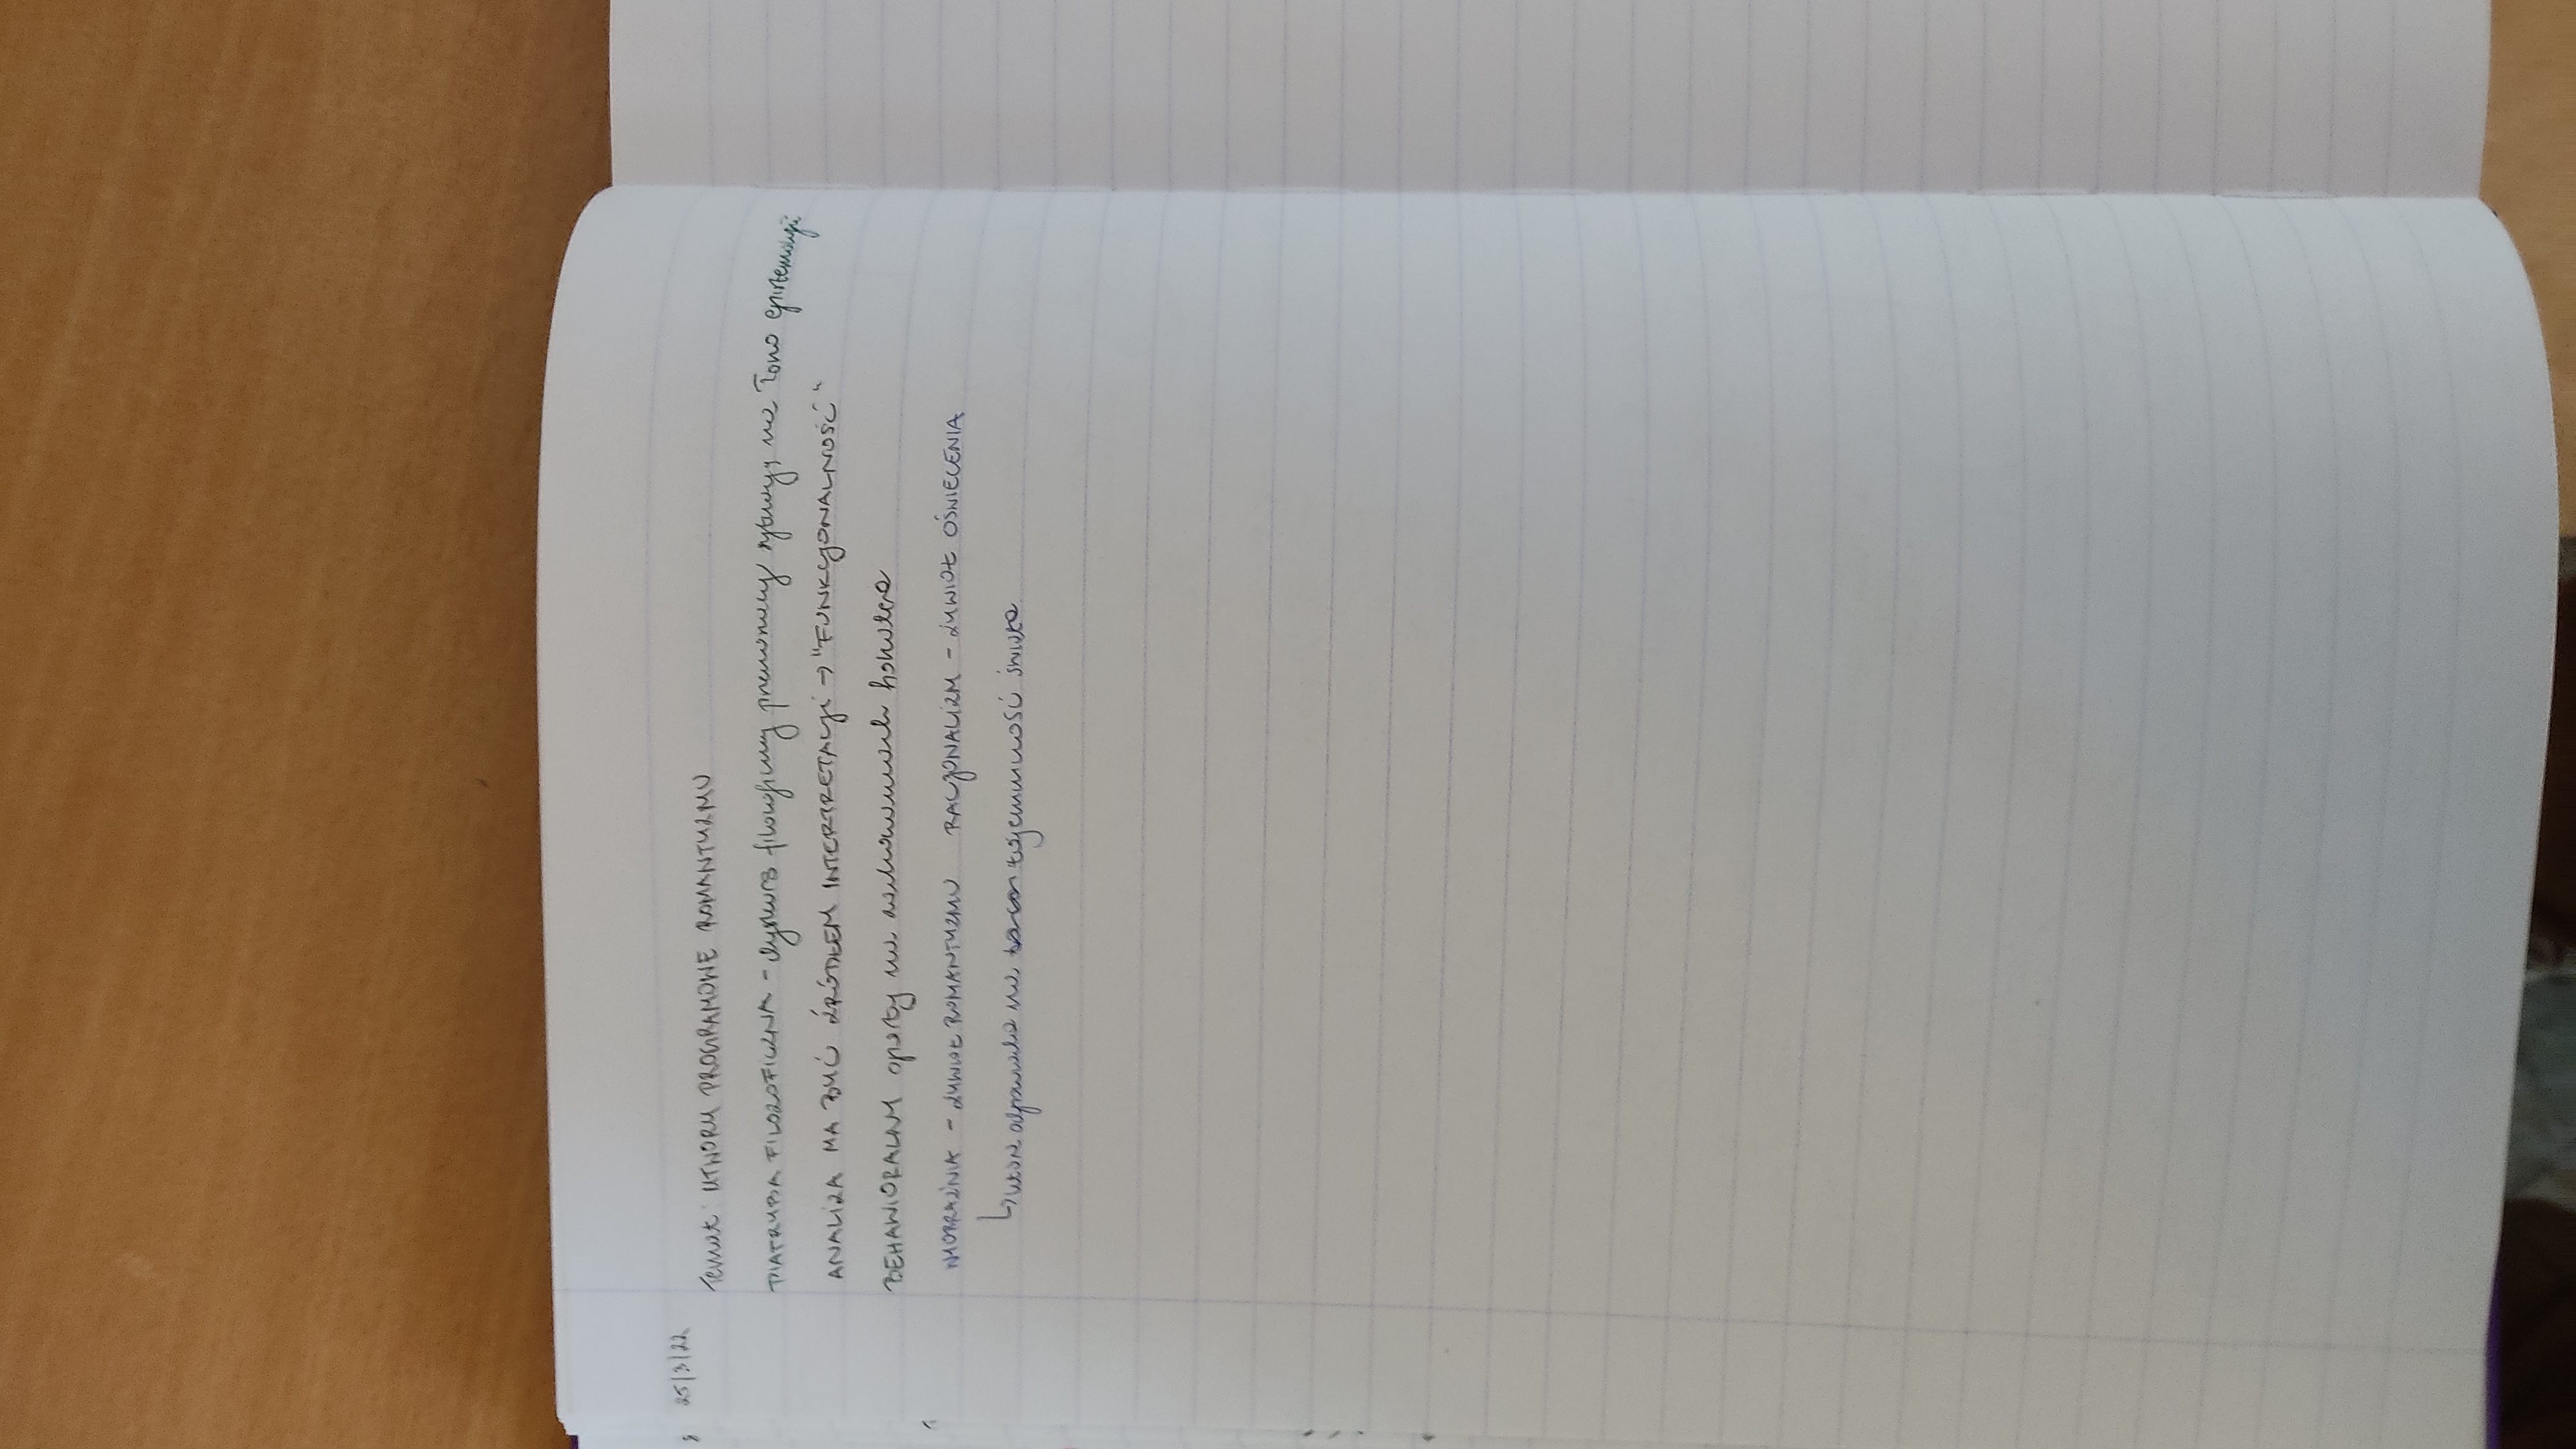 25/3/22
Temat: UTWORY PROGRAMOWE ROMANTYZMU
DIATRYBA FILOZOFICZNA - dyskurs filozoficzny przenoszący na łono epistemologii
ANALIZA MA BYĆ ŹRÓDŁEM INTERPRETACJI → "FUNKCJONALNOŚĆ"
BEHAWIORALNY oparty na zachowaniach bohatera
WYOBRAŹNIA - ŻYWIOŁ ROMANTYZMU RACJONALIZM - ŻYWIOŁ OŚWIECENIA
↳ która odpowiada na tajemniczość świata